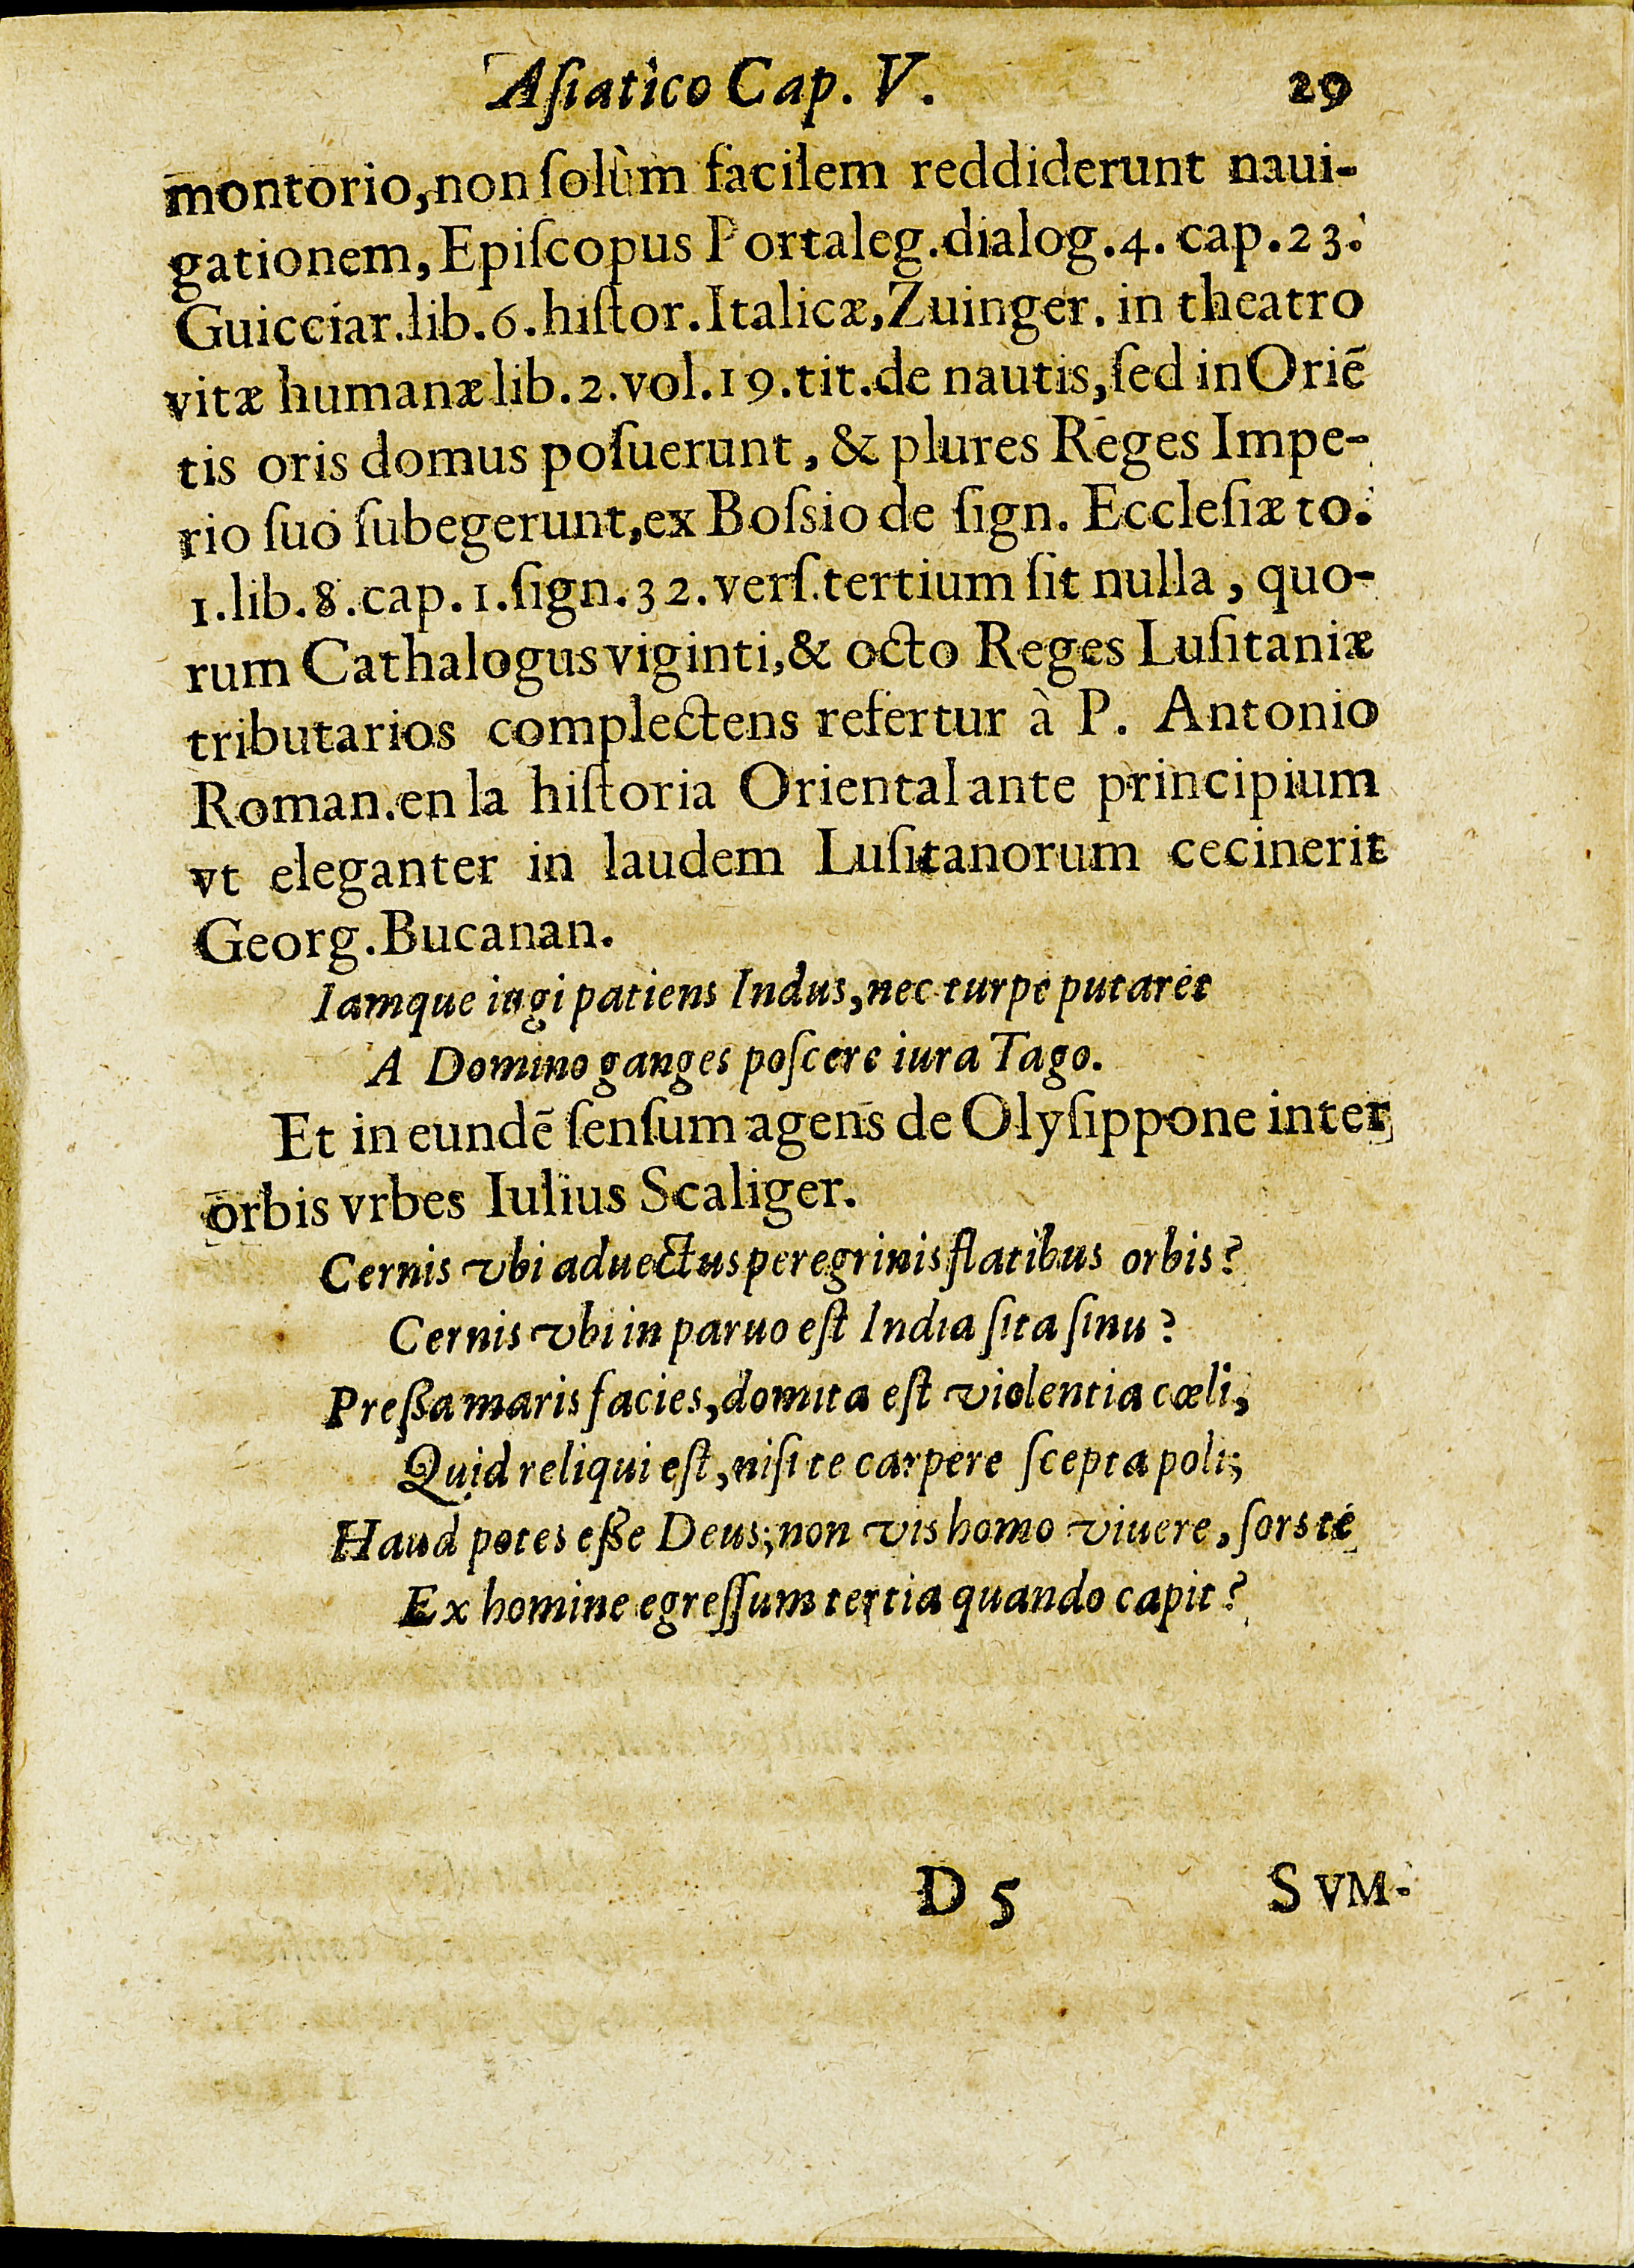 Aſiatico Cap. V. 29
montorio, non ſolùm facilem reddiderunt naui-
gationem, Epiſcopus Portaleg. dialog. 4. cap. 23.
Guicciar. lib. 6. hiſtor. Italicæ, Zuinger. in theatro
vitæ humanæ lib. 2. vol. 19. tit. de nautis, ſed in Oriẽ
tis oris domus poſuerunt, & plures Reges Impe-
rio ſuo ſubegerunt, ex Boſsio de ſign. Eccleſiæ to.
1. lib. 8. cap. 1. ſign. 32. verſ. tertium ſit nulla, quo-
rum Cathalogus viginti, & octo Reges Luſitaniæ
tributarios complectens refertur à P. Antonio
Roman. en la hiſtoria Oriental ante principium
vt eleganter in laudem Luſitanorum cecinerit
Georg. Bucanan.
Iamque iugi patiens Indus, nec turpe putaret
A Domino ganges poſcere iura Tago.
Et in eundẽ ſenſum agens de Olyſippone inter
orbis vrbes Iulius Scaliger.
Cernis vbi aduectus peregrinis flatibus orbis?
Cernis vbi in paruo eſt India ſita ſinu?
Preßa maris facies, domita eſt violentia cœli,
Quid reliqui eſt, niſi te carpere ſcepta poli;
Haud potes eße Deus; non vis homo viuere, ſors te
Ex homine egreſſum tertia quando capit?
D 5 SVM-